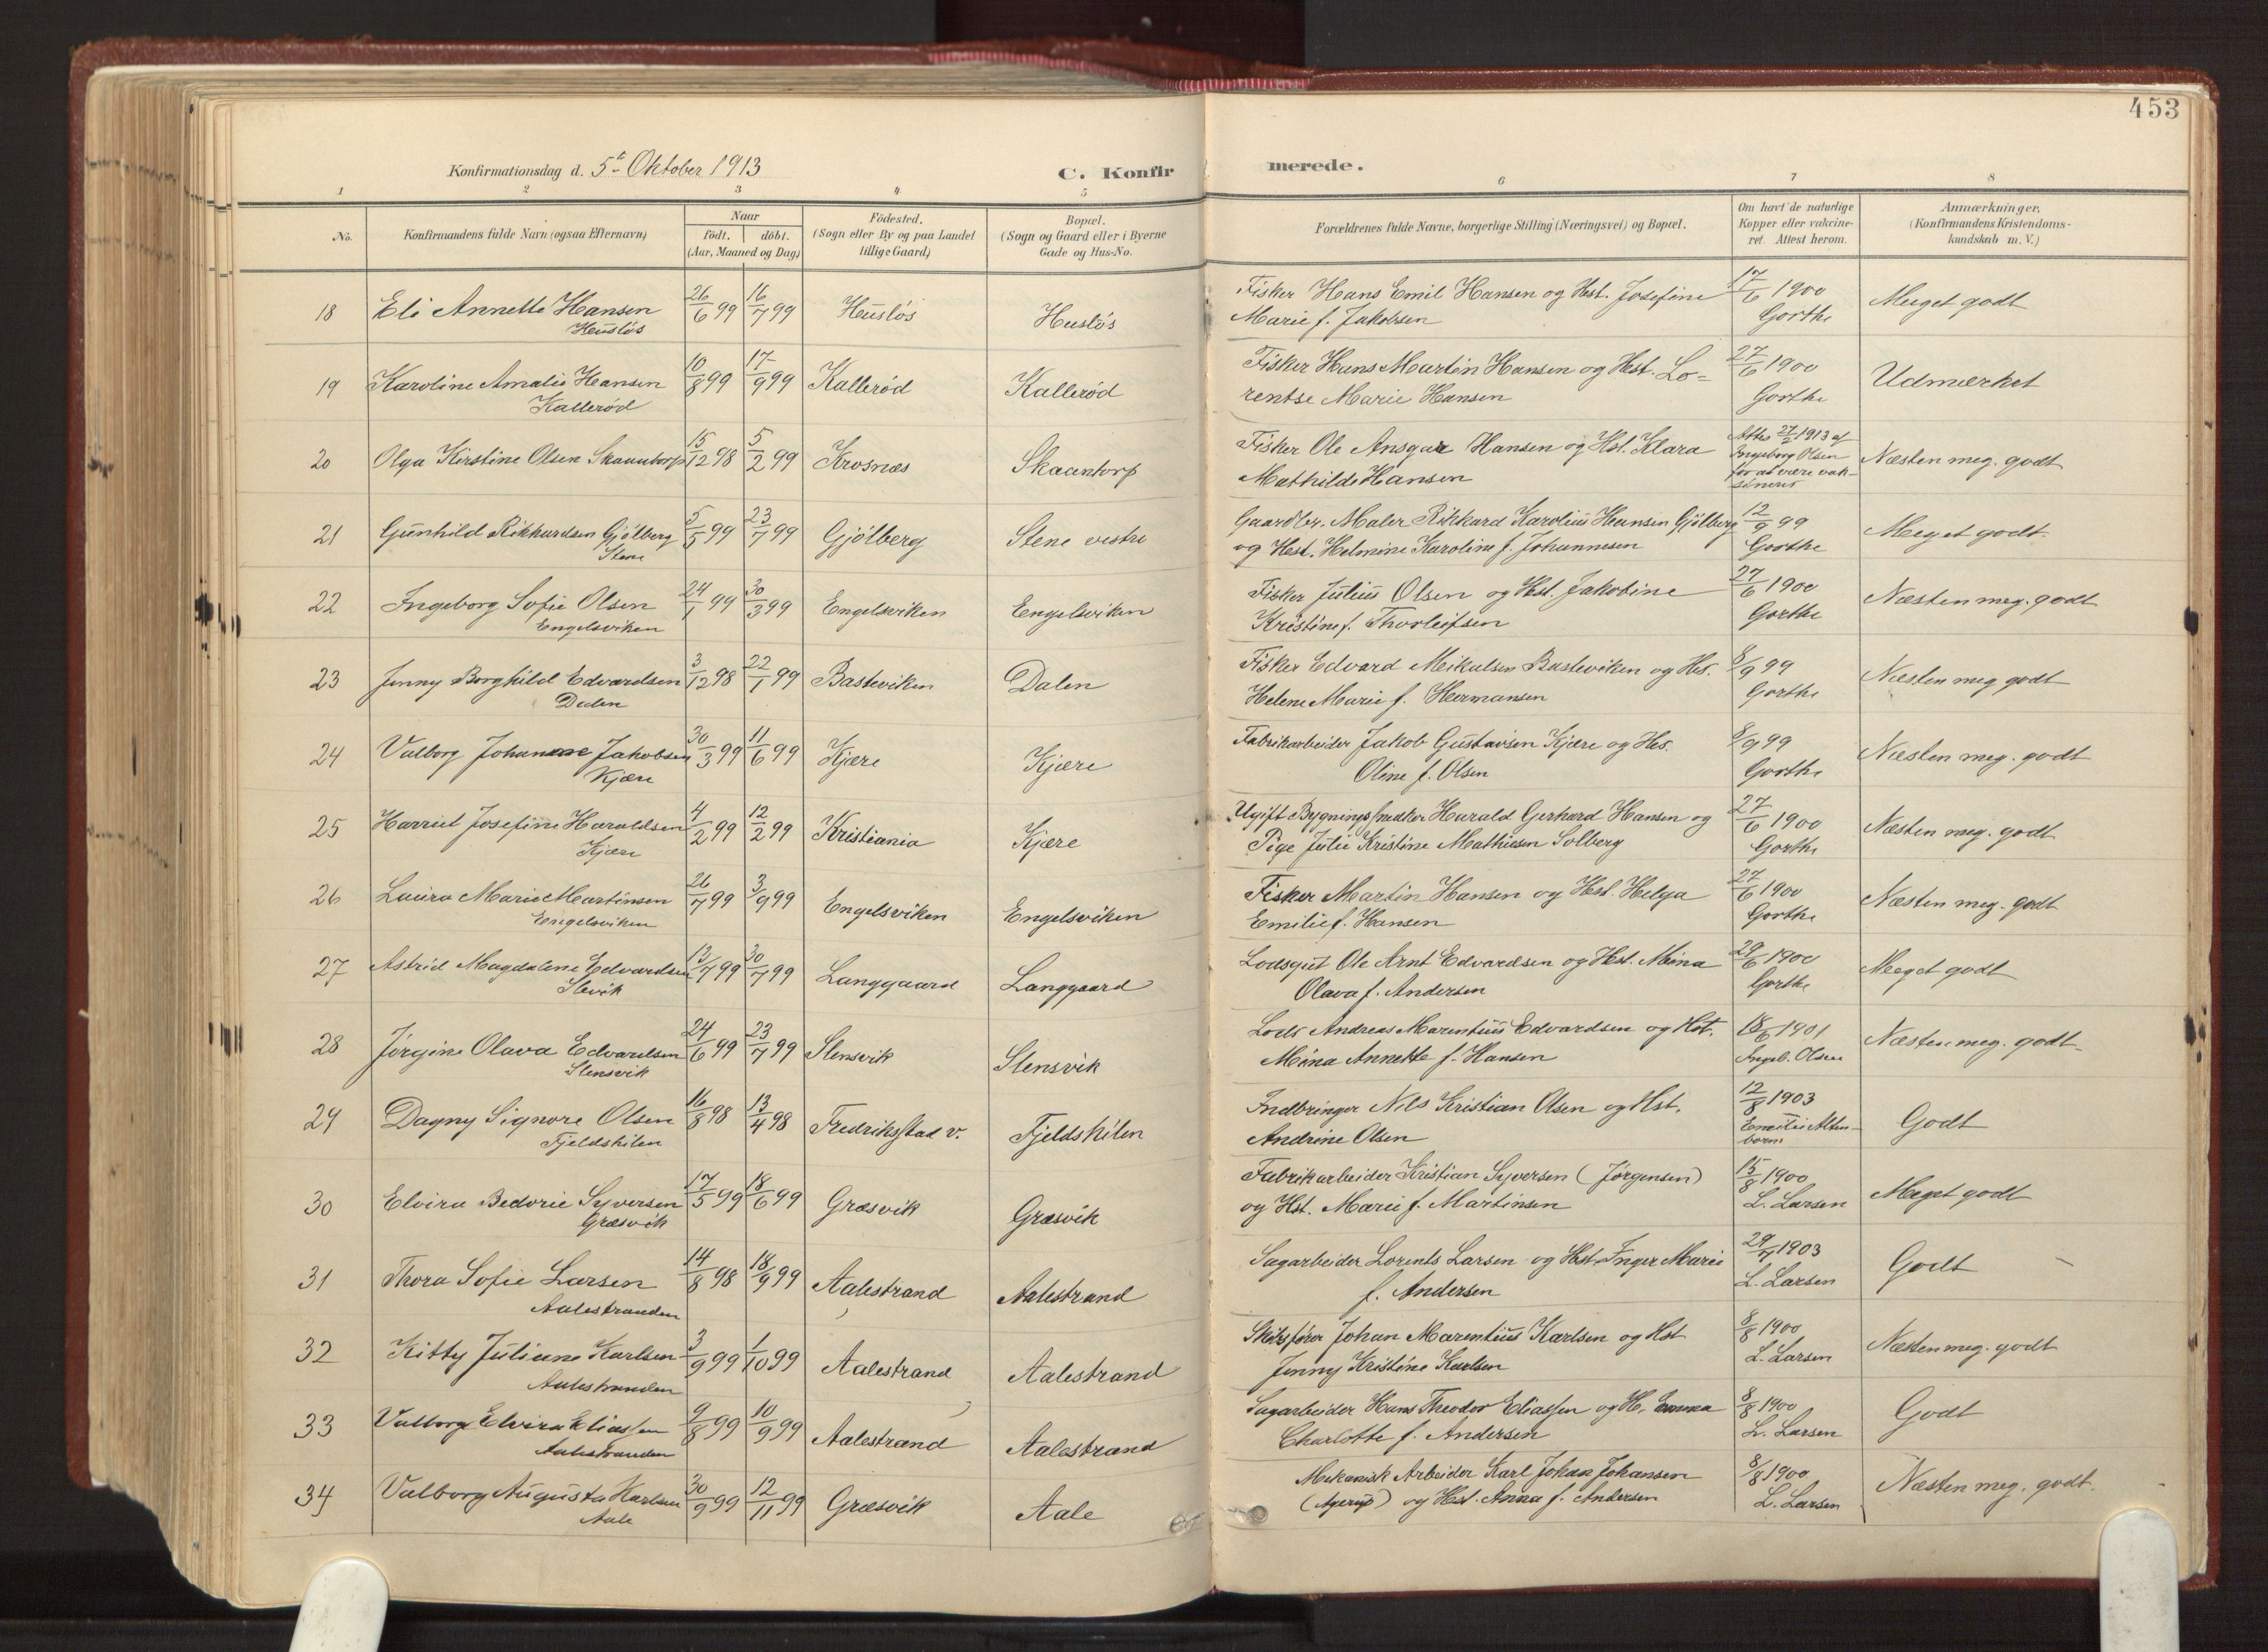 453
Konfirmationsdag d. 5te Oktober 1913
C. Konfirmerede.
1 2 3 4 5 6 7 8
No.
Konfirmandens fulde Navn (ogsaa Efternavn)
Naar
født. døbt.
(Aar, Maaned og Dag)
Födested.
(Sogn eller By og paa Landet
tillige Gaard)
Bopæl.
(Sogn og Gaard eller i Byerne
Gade og Hus-No.
Forældrenes fulde Navne, borgerlige Stilling (Næringsvei) og Bopæl.
Om havt de naturlige
Kopper eller vakcine-
ret. Attest herom.
Anmærkninger.
(Konfirmandens Kristendoms-
kundskab m. V.)
18 Eli Annette Hansen 26/6 99 16/7 99 Husløs Husløs Fisker Hans Emil Hansen og Hst. Josefine 17/6 1900 Meget godt
Husløs Marie f. Jakobsen Gorthe
19 Karoline Amalie Hansen 10/8 99 17/9 99 Kallerød Kallerød Fisker Hans Martin Hansen og Hst. Lo- 27/6 1900 Udmærket
Kallerød rentse Marie Hansen Gorthe
20 Olga Kirstine Olsen Skaantorp 15/12 98 5/2 99 Krosnæs Skaantorp Fisker Ole Ansgar Hansen og Hst. Klara Att. 27/2 1913 af Næsten meg. godt
Mathilde Hansen Ingeborg Olsen
for at være vak-
sineret
21 Gunhild Rikkardsen Gjølberg 5/5 99 23/7 99 Gjølberg Stene vestre Gaardbr. Maler Rikkard Karolius Hansen Gjølberg 12/9 99 Meget godt.
Stene og Hst. Helmine Karoline f. Johannesen Gorthe
22 Ingeborg Sofie Olsen 24/1 99 30/3 99 Engelsviken Engelsviken Fisker Julius Olsen og Hst. Jakobine 27/6 1900 Næsten meg. godt
Engelsviken Kristine f. Thorleifsen Gorthe
23 Jenny Borghild Edvardsen 3/12 98 22/1 99 Basteviken Dalen Fisker Edvard Mikalsen Basteviken og Hs. 8/9 99 Næsten meg godt
Dalen Helene Marie f. Hermansen Gorthe
24 Valborg Johanne Jakobsen 30/3 99 11/6 99 Kjære Kjære Fabrikarbeider Jakob Gustavsen Kjære og Hs. 8/9 99 Næsten meg. godt
Kjære Oline f. Olsen Gorthe
25 Harriet Josefine Haraldsen 4/2 99 12/2 99 Kristiania Kjære Ugift Bygningssnedker Harald Gerhard Hansen og 27/6 1900 Næsten meg. godt
Kjære Pige Julie Kristine Mathiesen Solberg Gorthe
26 Laura Marie Martinsen 26/7 99 3/9 99 Engelsviken Engelsviken Fisker Martin Hansen og Hst. Helga 27/6 1900 Næsten meg. godt
Engelsviken Emilie f. Hansen Gorthe
27 Astrid Magdalene Edvardsen 13/7 99 30/7 99 Langgaard Langgaard Lodsgut Ole Arnt Edvardsen og Hst. Mina 29/6 1900 Meget godt
Slevik Olava f. Andersen Gorthe
28 Jørgine Olava Edvardsen 24/6 99 23/7 99 Stensvik Stensvik Lods Andreas Marentius Edvardsen og Hst. 18/6 1901 Næsten meg. godt
Stensvik Mina Annette f. Hansen Ingeb. Olsen
29 Dagny Signore Olsen 16/8 98 13/4 98 Fredriksstad v. Fjeldskilen Indbringer Nils Kristian Olsen og Hst. 12/8 1903 Godt
Fjeldskilen Andrine Olsen Emilie Alten-
born
30 Elvira Bedorie Syversen 17/5 99 18/6 99 Græsvik Græsvik Fabrikarbeider Kristian Syversen (Jørgensen) 15/8 1900 Meget godt
Græsvik og Hst. Marie f. Martinsen L. Larsen
31 Thora Sofie Larsen 14/8 98 18/9 99 Aalestrand Aalestrand Sagarbeider Lorents Larsen og Hst. Inger Marie 29/7 1903 Godt
Aalestranden f. Andersen L. Larsen
32 Kitty Juliane Karlsen 3/9 99 1/10 99 Aalestrand Aalestrand Skibsfører Johan Marentius Karlsen og Hst 8/8 1900 Næsten meg. godt
Aalestranden Jenny Kristine Karlsen L. Larsen
33 Valborg Elvira Eliassen 9/8 99 10/9 99 Aalestrand Aalestrand Sagarbeider Hans Theodor Eliassen og H. Emma 8/8 1900 Godt
Aalestranden Charlotte f. Andersen L. Larsen
34 Valborg Augusta Karlsen 30/9 99 12/11 99 Græsvik Aale Mekanisk Arbeider Karl Johan Johansen 8/8 1900 Næsten meg. godt.
Aale (Agerup) og Hst. Anna f. Andersen L. Larsen